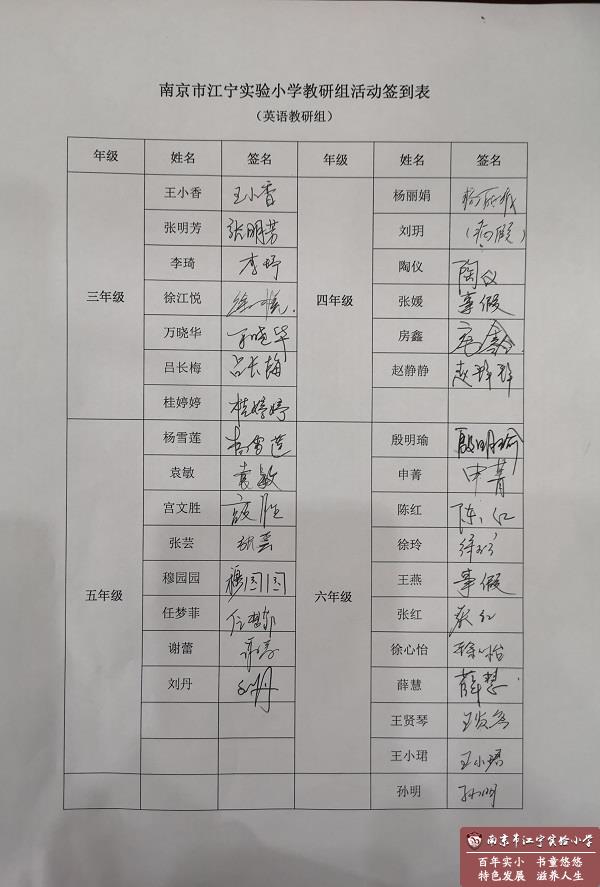 南京市江宁实验小学教研组活动签到表
（英语教研组）
年级 姓名 签名 年级 姓名 签名
王小香 王小香 杨丽娟 杨丽娟
张明芳 张明芳 刘玥 （病假）
李琦 陶仪 陶仪
三年级 徐江悦 四年级 张媛 事假
万晓华 万晓华 房鑫 房鑫
吕长梅 吕长梅 赵静静 赵静静
桂婷婷 桂婷婷
杨雪莲 杨雪莲 殷明瑜 殷明瑜
袁敏 袁敏 申菁 申菁
宫文胜 陈红 陈红
张芸 张芸 徐玲 徐玲
五年级 穆园园 穆园园 六年级 王燕 事假
任梦菲 任梦菲 张红 张红
谢蕾 徐心怡 徐心怡
刘丹 刘丹 薛慧 薛慧
王贤琴 王贤琴
王小珺 王小珺
孙明 孙明
南京市江宁实验小学
百年实小 书童悠悠
特色发展 滋养人生